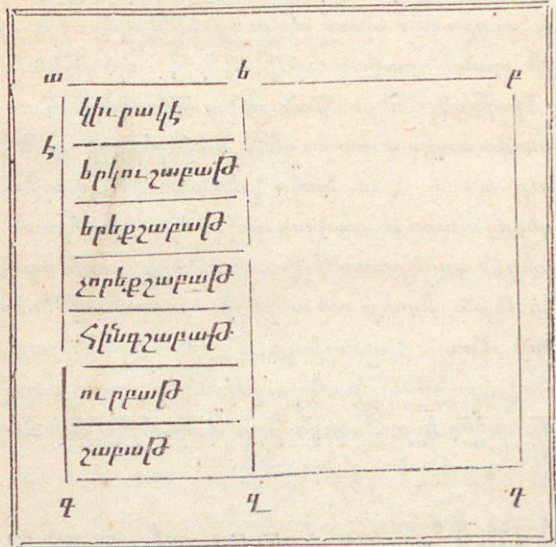 ա ե բ
կիւրակէ
է
երկուշաբաթ
երեքշաբաթ
չորեքշաբաթ
Հինգշաբաթ
ուրբաթ
շաբաթ
գ զ դ